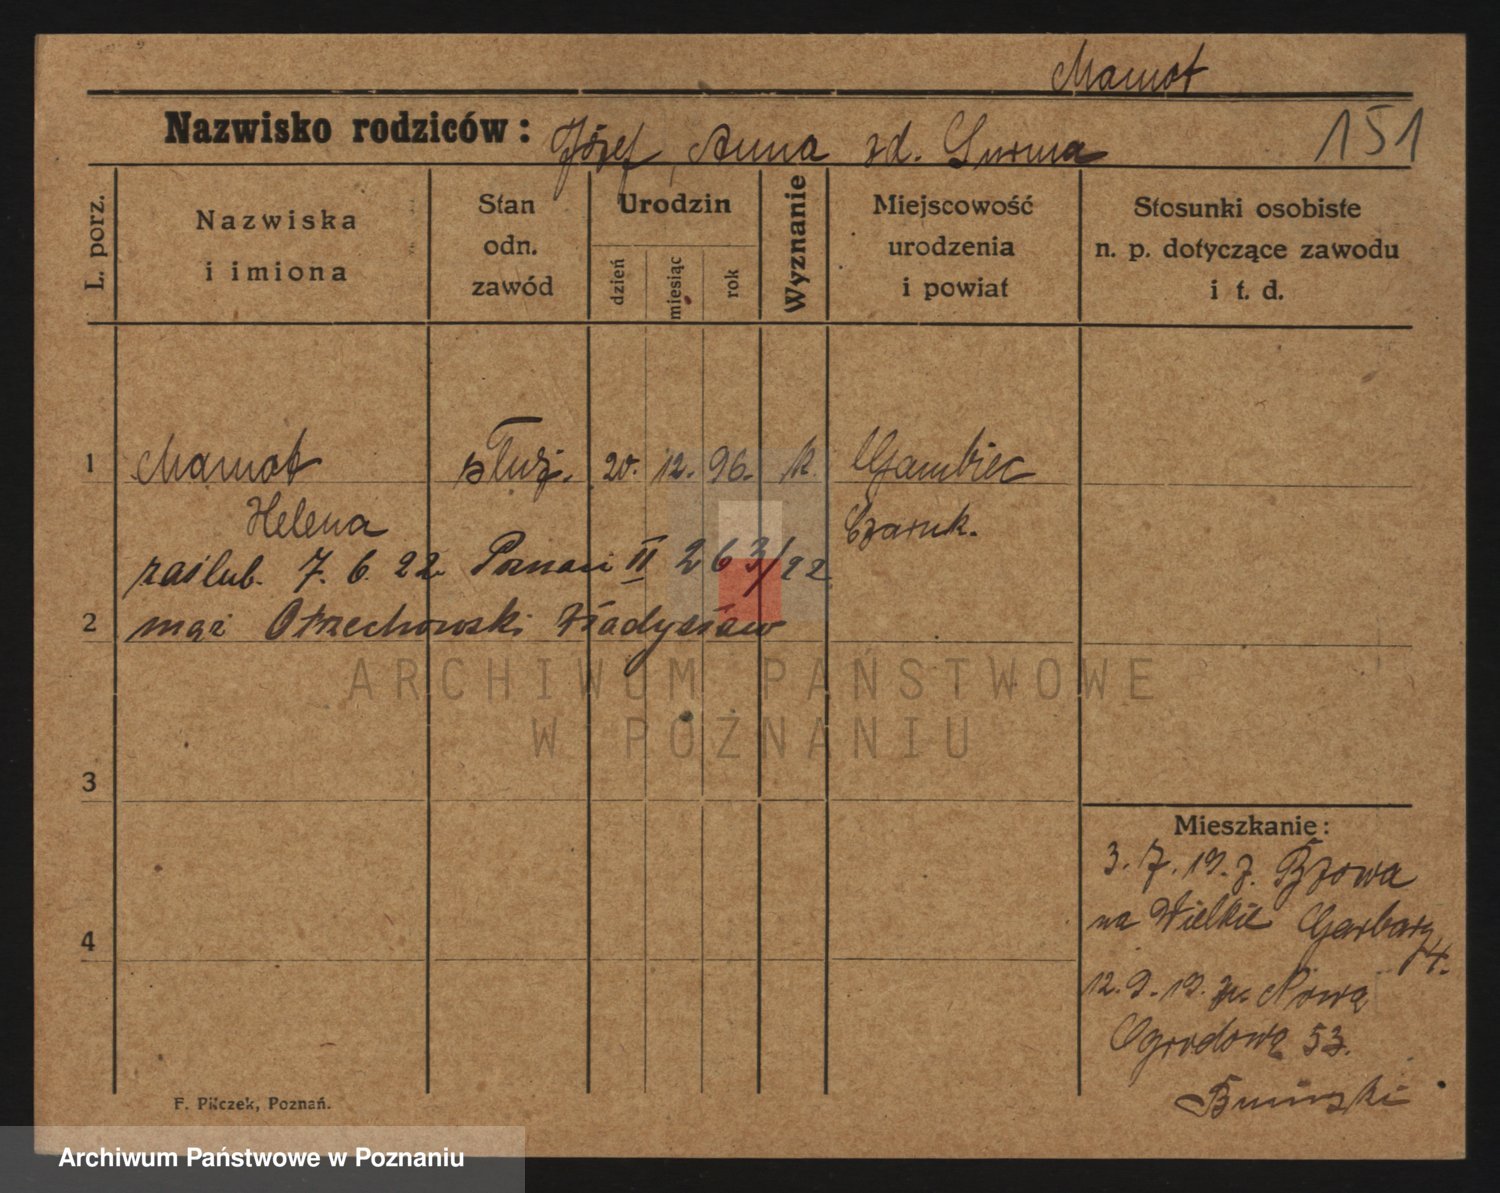 Mamot
Nazwisko rodziców: Józef, Anna zd. Surma 151
L. porz.
Nazwiska
i imiona
Stan
odn.
zawód
Urodzin
dzień
miesiąc
rok
Wyznanie
Miejscowość
urodzenia
i powiat
Stosunki osobiste
n. p. dotyczące zawodu
i t. d.
1 Mamot służ. 20. 12. 96. k. Gambiec
Helena Czarnk.
zaślub. 7. 6. 22 Poznań II 263/22
2 mąż Orzechowski Władysław
ARCHIWUM PAŃSTWOWE
W POZNANIU
3
4
Mieszkanie:
3. 7. 19. z Bzowa
na Wielkie Garbary
12. 9. 19. na Nową
Ogrodową 53.
Buniński
F. Pilczek, Poznań.
Archiwum Państwowe w Poznaniu